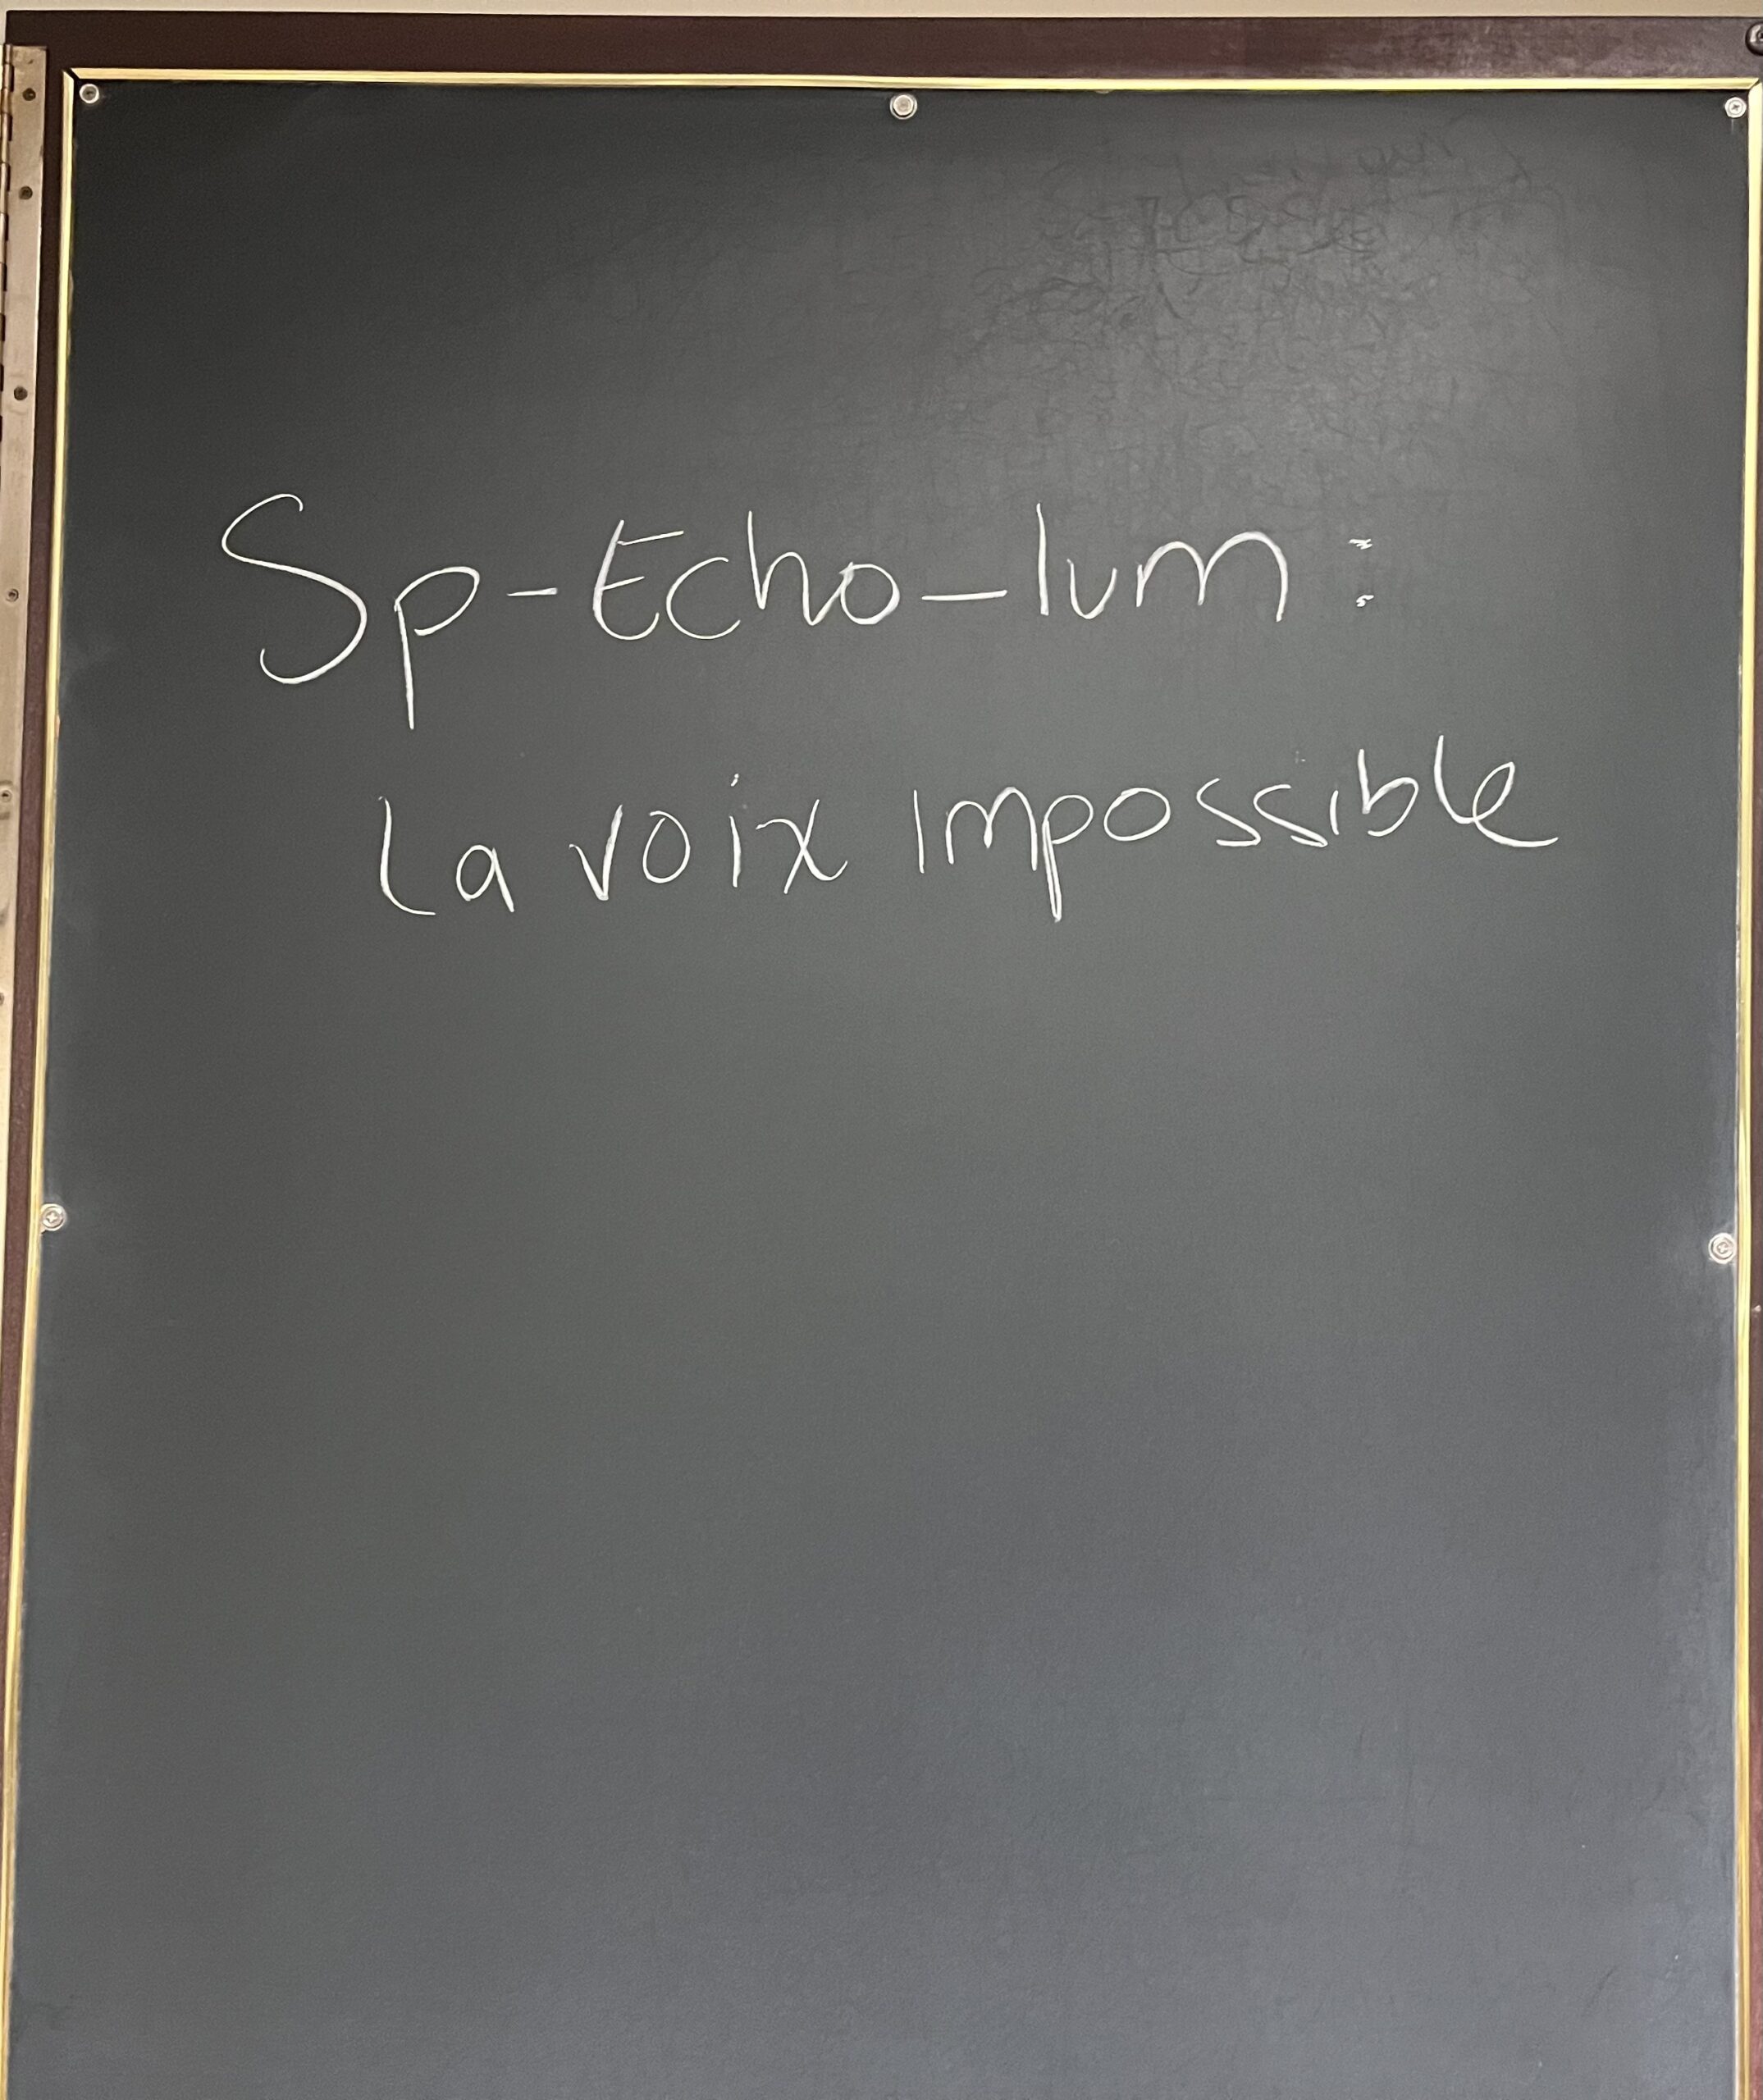 Sp-Echo-lum :
La voix impossible